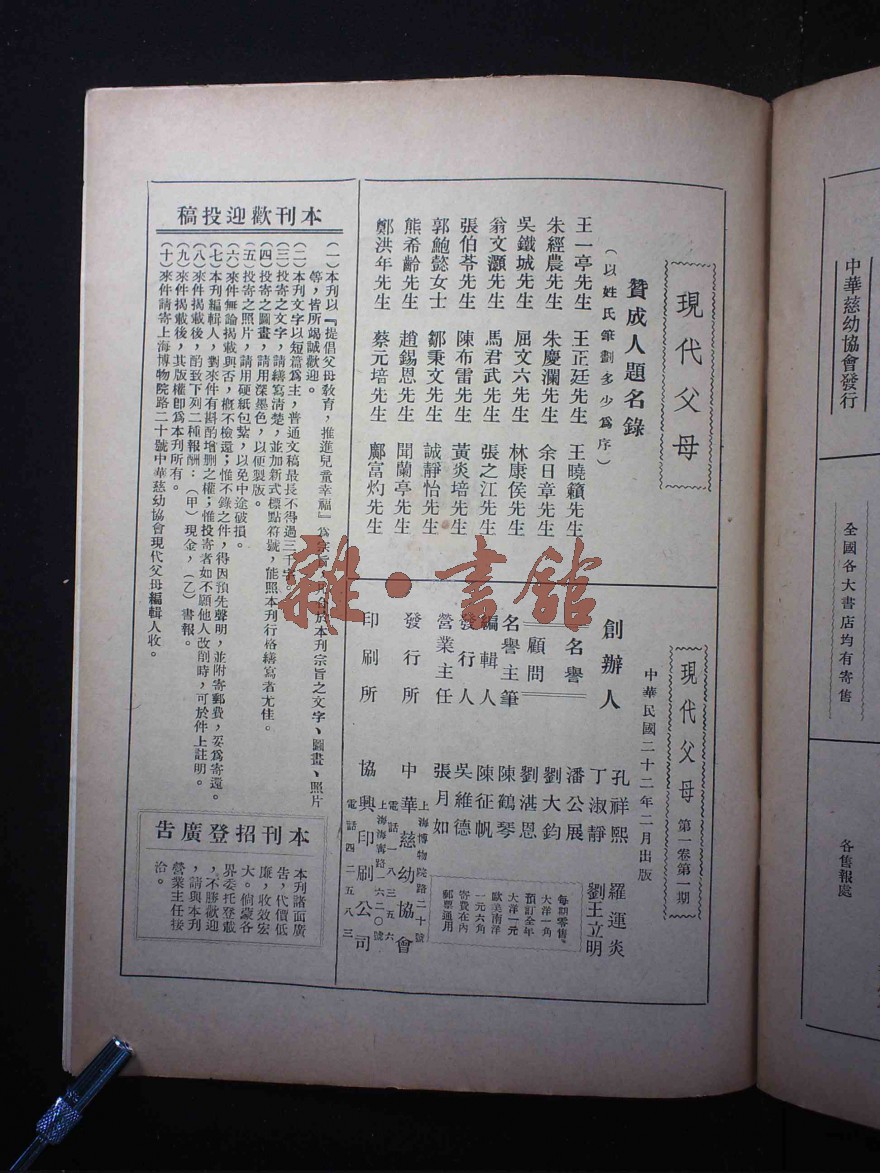 現代父母
贊成人題名錄
（以姓氏筆劃多少為序）
王一亭先生 王正廷先生 王曉籟先生
朱經農先生 朱慶瀾先生 余日章先生
吳鐵城先生 屈文六先生 林康侯先生
翁文灝先生 馬君武先生 張之江先生
張伯苓先生 陳布雷先生 黃炎培先生
郭鮑懿女士 鄒秉文先生 誠靜怡先生
熊希齡先生 趙錫恩先生 聞蘭亭先生
鄭洪年先生 蔡元培先生 鄺富灼先生
現代父母 第一卷第一期
中華民國二十二年二月出版
創辦人 孔祥熙 羅運炎
丁淑靜 劉王立明
名譽顧問 潘公展
劉大鈞
劉湛恩
名譽主筆 陳鶴琴
編輯人 陳征帆
發行人 吳維德
營業主任 張月如
發行所 中華慈幼協會
上海博物院路二十號
電話一八三五六
印刷所 協興印刷公司
上海海寧路六二〇號
電話四二五八三
每期零售
大洋一角
預訂全年
大洋一元
歐美南洋
一元六角
寄費在內
郵票通用
本刊歡迎投稿
（一）本刊以『提倡父母教育，推進兒童幸福』為宗旨，於本刊宗旨之文字、圖畫、照片
等，皆所竭誠歡迎。
（二）本刊文字以短篇為主，普通文稿最長不得過三千字。
（三）投寄之文字，請繕寫清楚，並加新式標點符號，能照本刊行格繕寫者尤佳。
（四）投寄之圖畫，請用深墨色，以便製版。
（五）投寄之照片，請用硬紙包紮，以免中途破損。
（六）來件無論揭載與否，概不檢還；惟不錄之件，得因預先聲明，並附寄郵費，妥為寄還。
（七）本刊編輯人，對來件有斟酌增刪之權；惟投寄者如不願他人改削時，可於件上註明。
（八）來件揭載後，酌致下列二種報酬：（甲）現金，（乙）書報。
（九）來件揭載後，其版權即為本刊所有。
（十）來件請寄上海博物院路二十號中華慈幼協會現代父母編輯人收。
本刊招登廣告
本刊諸面廣
告，代價低
廉，收效宏
大。倘蒙各
界委托登載
，不勝歡迎
，請與本刊
營業主任接
洽。
中華慈幼協會發行
全國各大書店均有寄售
各售報處
雜·書館